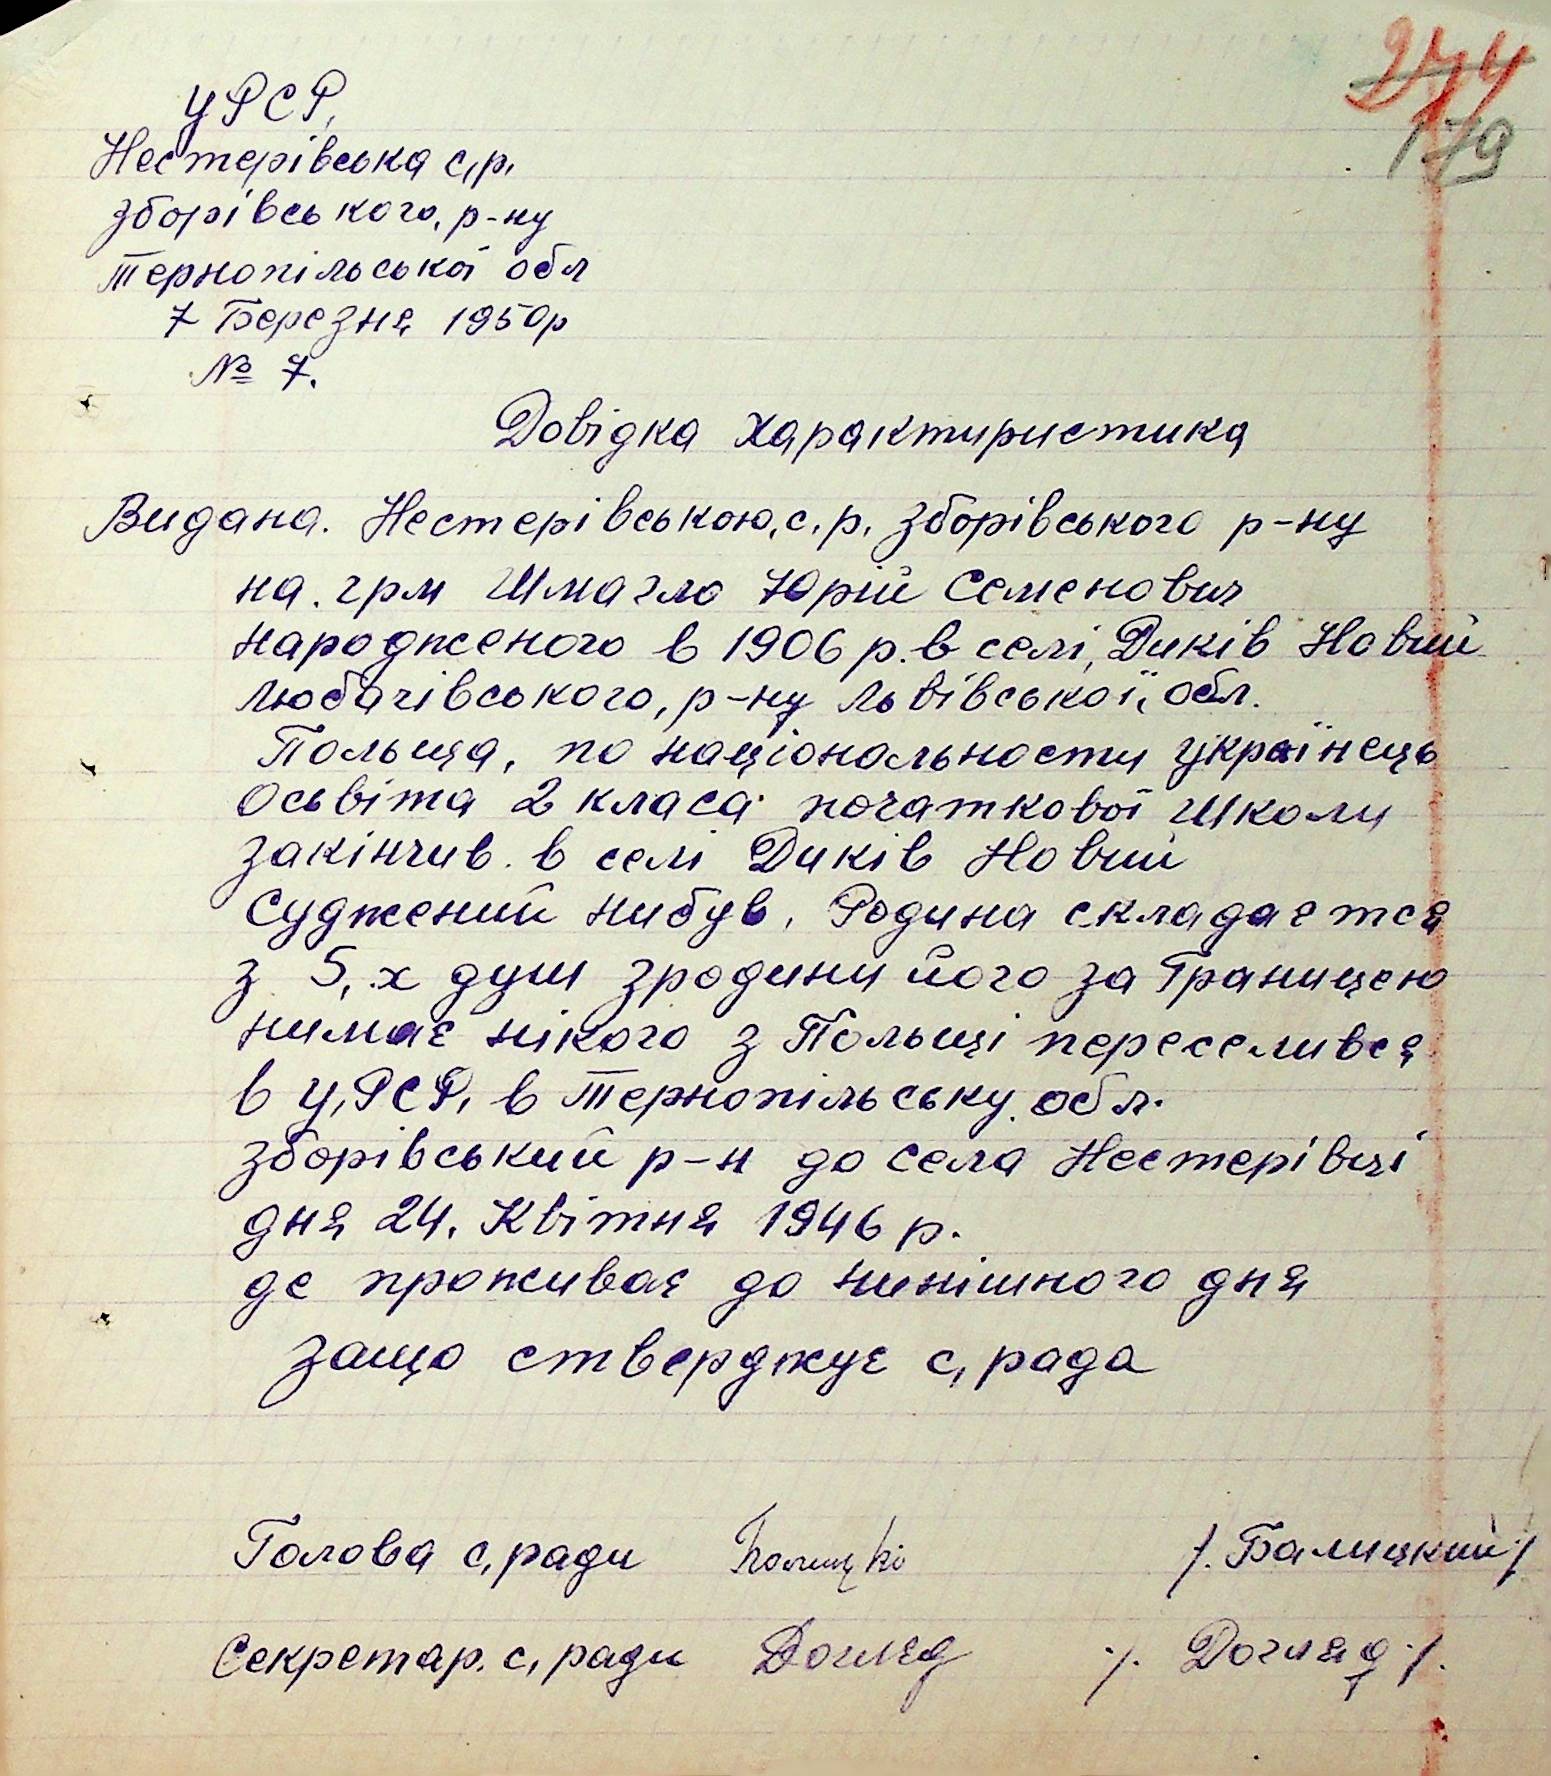 274
179
УРСР,
Нестерівська с,р,
зборівського, р-ну
Тернопільської обл
7 Березня 1950р
№ 7.
Довідка характиристика
Видана. Нестерівською, с. р. зборівського р-ну
на. грм Шмагло Юрій Семенович
народженого в 1906 р. в селі, Диків Новий
любачівського, р-ну львівської, обл.
Польща, по національности українець
Осьвіта 2 класа початкової школи
закінчив. в селі Диків Новий
Суджений нибув. Родина складаєтся
з 5,х душ зродини його за Границею
нимає нікого з Польщі переселився
в У,РСР, в Тернопільську обл.
зборівський р-н до села Нестерівці
дня 24. Квітня 1946 р.
де проживає до нинішного дня
защо стверджує с, рада
Голова с, ради /. Балицкий /
Секретар. с, ради Догляд ./. Догляд ./.